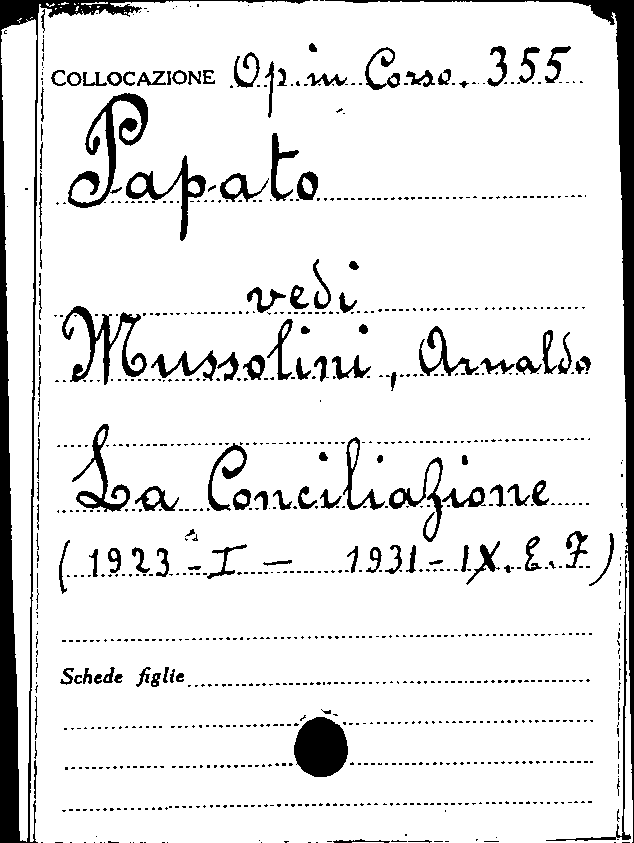 COLLOCAZIONE Op. in Corso. 355
Papato
vedi
Mussolini, Arnaldo
La Conciliazione
(1923-I — 1931-IX. E. F)
Schede figlie